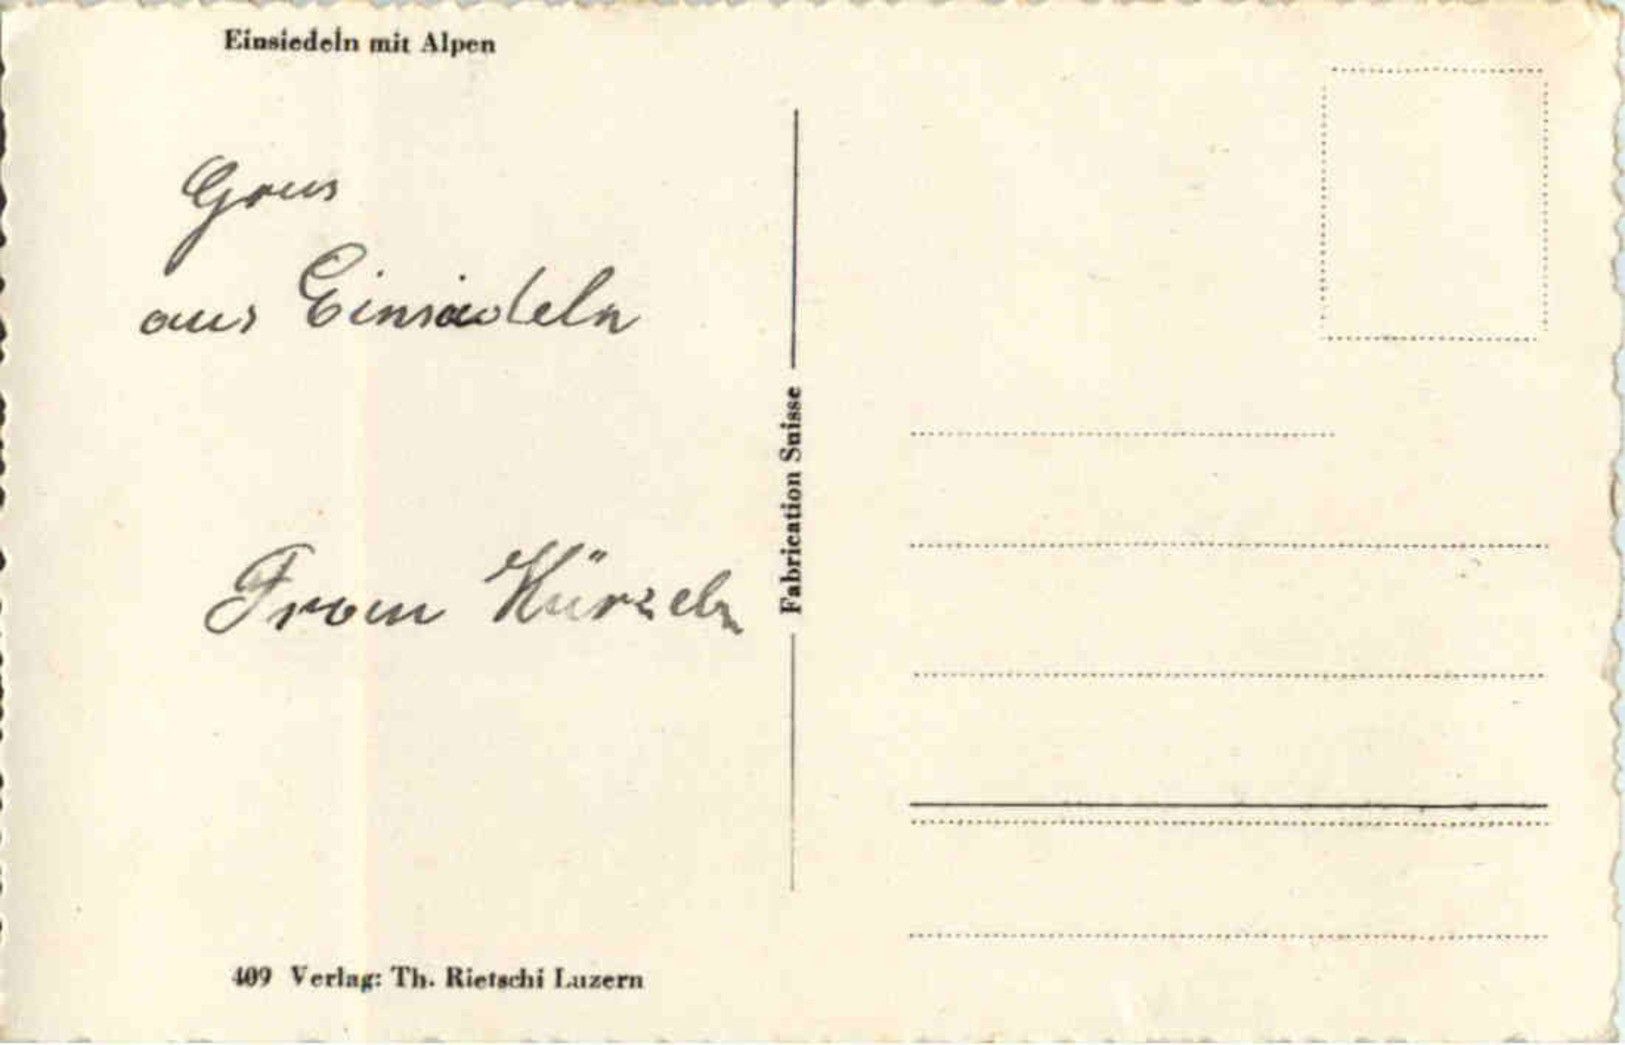 Einsiedeln mit Alpen
Grus
aus Einsiedeln
Fabrication Suisse
From Kürzeln
409 Verlag: Th. Rietschi Luzern